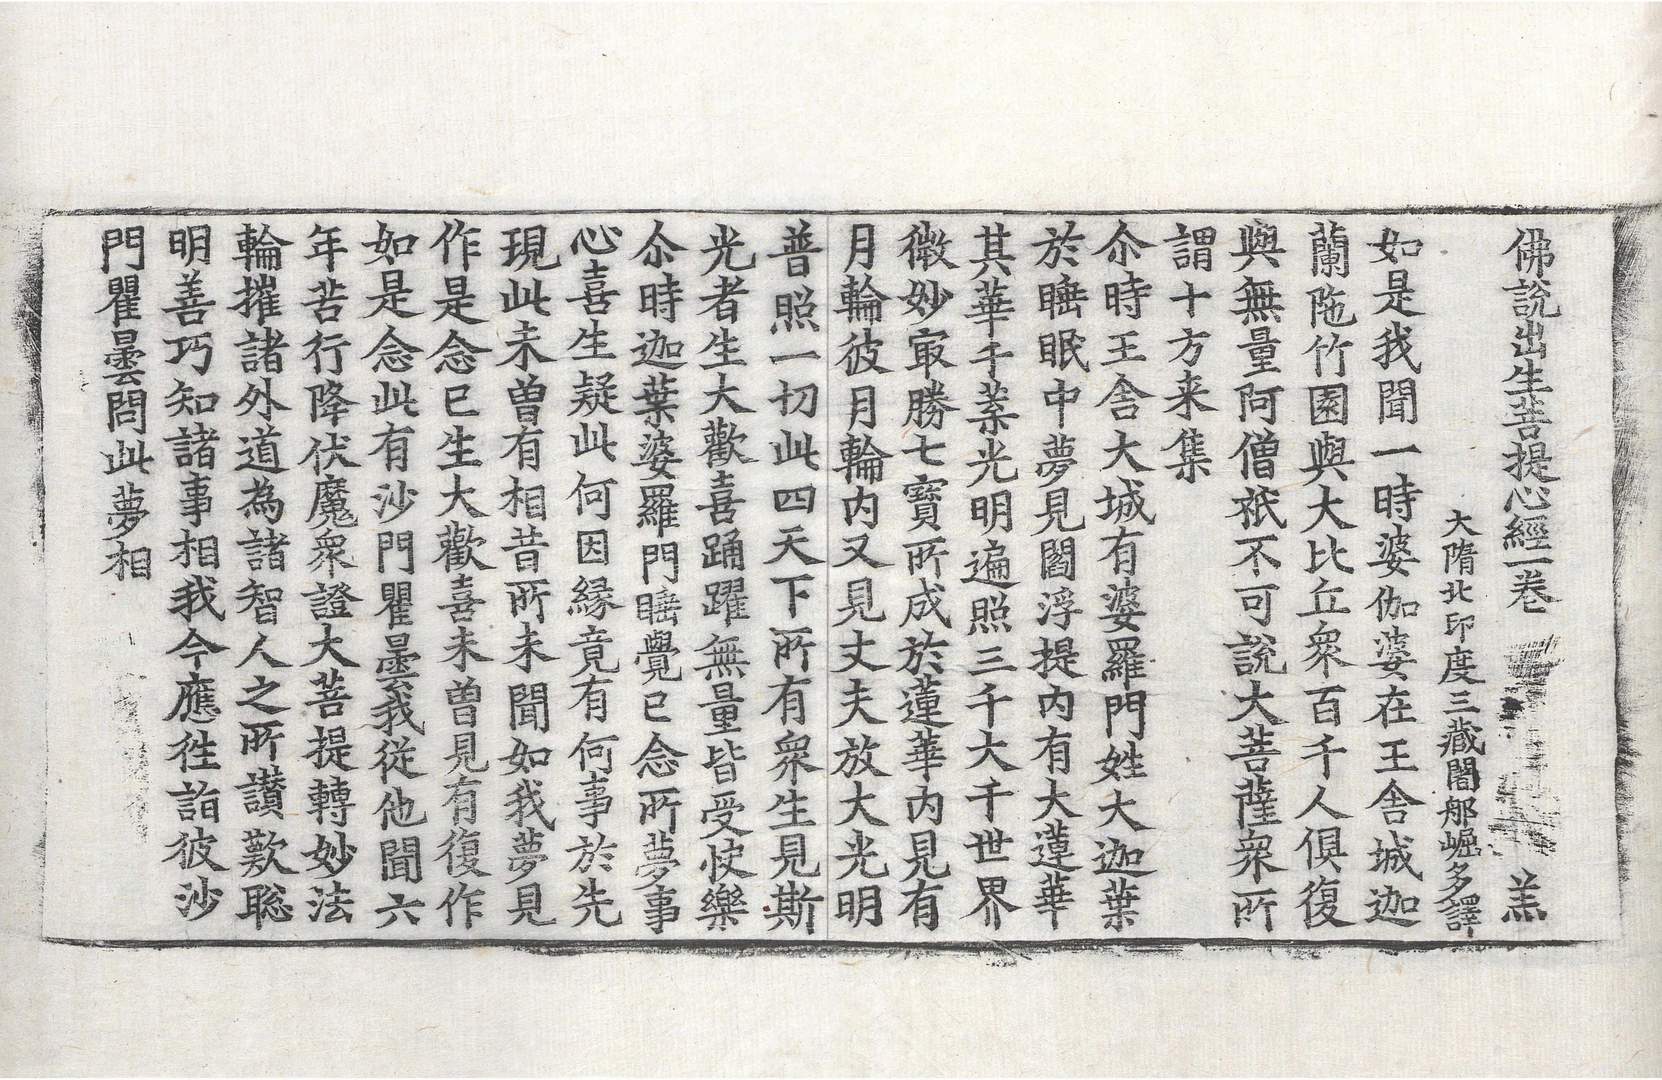 佛說出生菩提心經一卷 羔
大隋北印度三藏闍那崛多譯
如是我聞一時婆伽婆在王舍城迦
蘭陁竹園與大比丘衆百千人俱復
與無量阿僧祇不可說大菩薩衆所
謂十方来集
尒時王舍大城有婆羅門姓大迦葉
於睡眠中夢見閻浮提內有大蓮華
其華千葉光明遍照三千大千世界
微妙㝡勝七寶所成於蓮華內見有
月輪彼月輪內又見丈夫放大光明
普照一切此四天下所有衆生見斯
光者生大歡喜踊躍無量皆受快樂
尒時迦葉婆羅門睡覺已念所夢事
心喜生疑此何因緣竟有何事於先
現此未曾有相昔所未聞如我夢見
作是念已生大歡喜未曾見有復作
如是念此有沙門瞿曇我從他聞六
年苦行降伏魔衆證大菩提轉妙法
輪摧諸外道為諸智人之所讃歎聡
明善巧知諸事相我今應徃詣彼沙
門瞿曇問此夢相